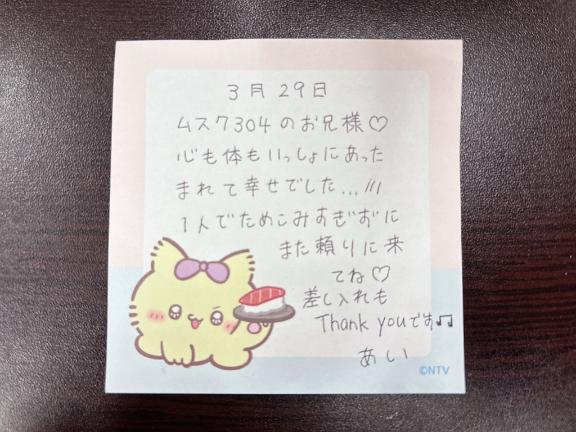 3月29日
ムスク304のお兄様♡
心も体もいっしょにあった
まれて幸せでした...///
1人でためこみすぎずに
また頼りに来
てね♡
差し入れも
Thank youです♫
あい
©NTV